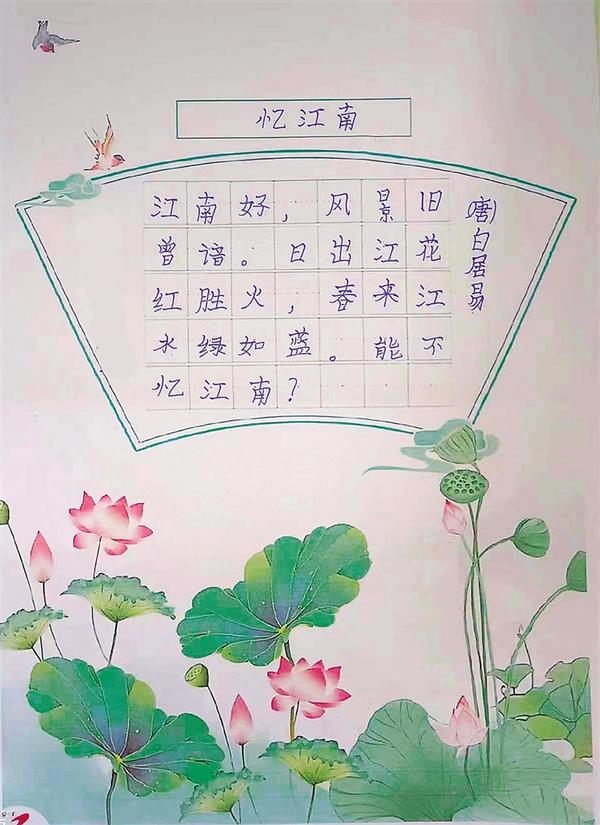 忆江南
江南好，风景旧
曾谙。日出江花
红胜火，春来江
水绿如蓝。能不
忆江南？
(唐)白居易